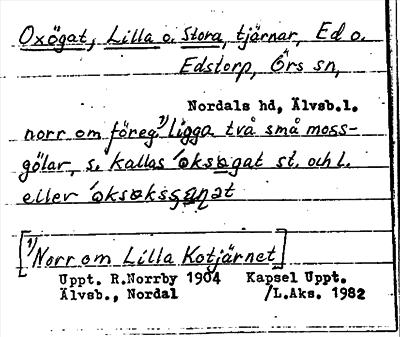 Oxögat, Lilla o. Stora, tjärnar, Ed o.
Edstorp, Örs sn,
Nordals hd, Älvsb.l.
norr om föreg.¹⁾ ligga två små moss-
gölar, s. kallas
st. och l.
eller
[¹⁾Norr om Lilla Kotjärnet]
Uppt. R.Norrby 1904 Kapsel Uppt.
Älvsb., Nordal /L.Aks. 1982